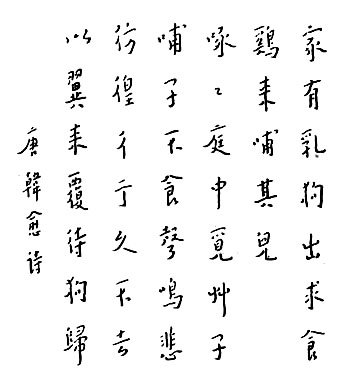 家有乳狗出求食
鷄来哺其兒
啄〻庭中覓艸子
哺子不食聲鳴悲
彷徨彳亍久不去
以翼来覆待狗歸
唐韓愈诗